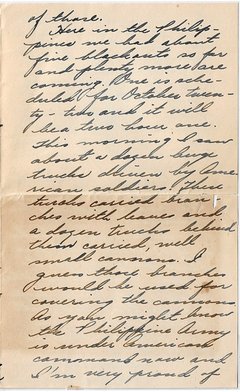 of those.
Here in the Philip-
pines we had about
five blackouts so far
and plenty more are
coming. One is sche-
duled for October twen-
ty-two and it will
be a two hour one.
This morning I saw
about a dozen huge
trucks driven by Ame-
rican soldiers. These
trucks carried bran-
ches with leaves and
a dozen trucks behind
them carried, well
small cannons. I
guess those branches
would be used for
covering the cannons.
As you might know
the Philippine Army
is under American
command now and
I'm very proud of